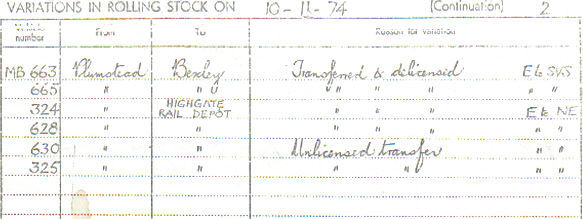 VARIATIONS IN ROLLING STOCK ON 10-11-74 (Continuation) 2
number From To Reason for variation
MB 663 Plumstead Bexley Transferred & delicensed E to SVS
665 " " " " " " "
324 " HIGHGATE RAIL DEPOT " " " E to NE
628 " " " " " " "
630 " " Unlicensed transfer " "
325 " " " " " "